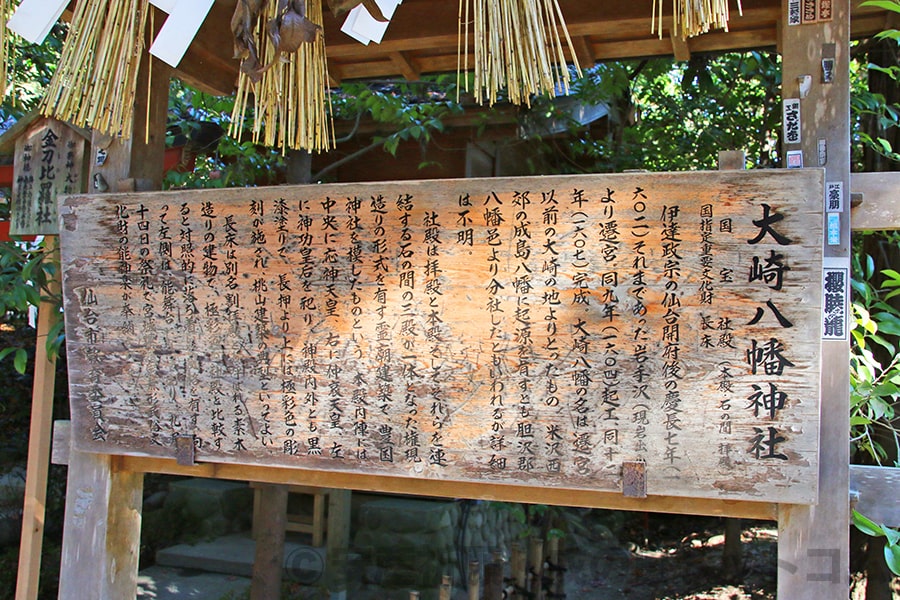 大崎八幡神社
国宝 社殿(本殿、石の間、拝殿)
国指定重要文化財 長床
伊達政宗の仙台開府後の慶長七年(一
六〇二)それまであった岩手沢(現
より遷宮、同九年(一六〇四)起工、同十二
年(一六〇七)完成。大崎八幡の名は遷宮
以前の大崎の地よりとったもの。米沢西
郊の成島八幡に起源を有すとも胆沢郡
八幡邑より分社したともいわれるが詳細
は不明。
社殿は拝殿と本殿、そしてそれらを連
結する石の間の三殿が一体となった権現
造りの形式を有す霊廟朝建築で、豊国
神社を模したものという。本殿内陣には
中央に応神天皇、右に仲哀天皇、左
に神功皇后を祀り、神殿内外とも黒
漆塗りで、長押より上には極彩色の彫
刻が施され、桃山建築の
といってよい
長床は別名割
れる素木
造りの建物で、極彩
社殿と比較す
ると対照的に落
有す。向
って左側は能
十四日の祭礼で
化財の能神楽が奉
仙台市教育委員会
金刀比羅社
櫻睦 龍
高朋